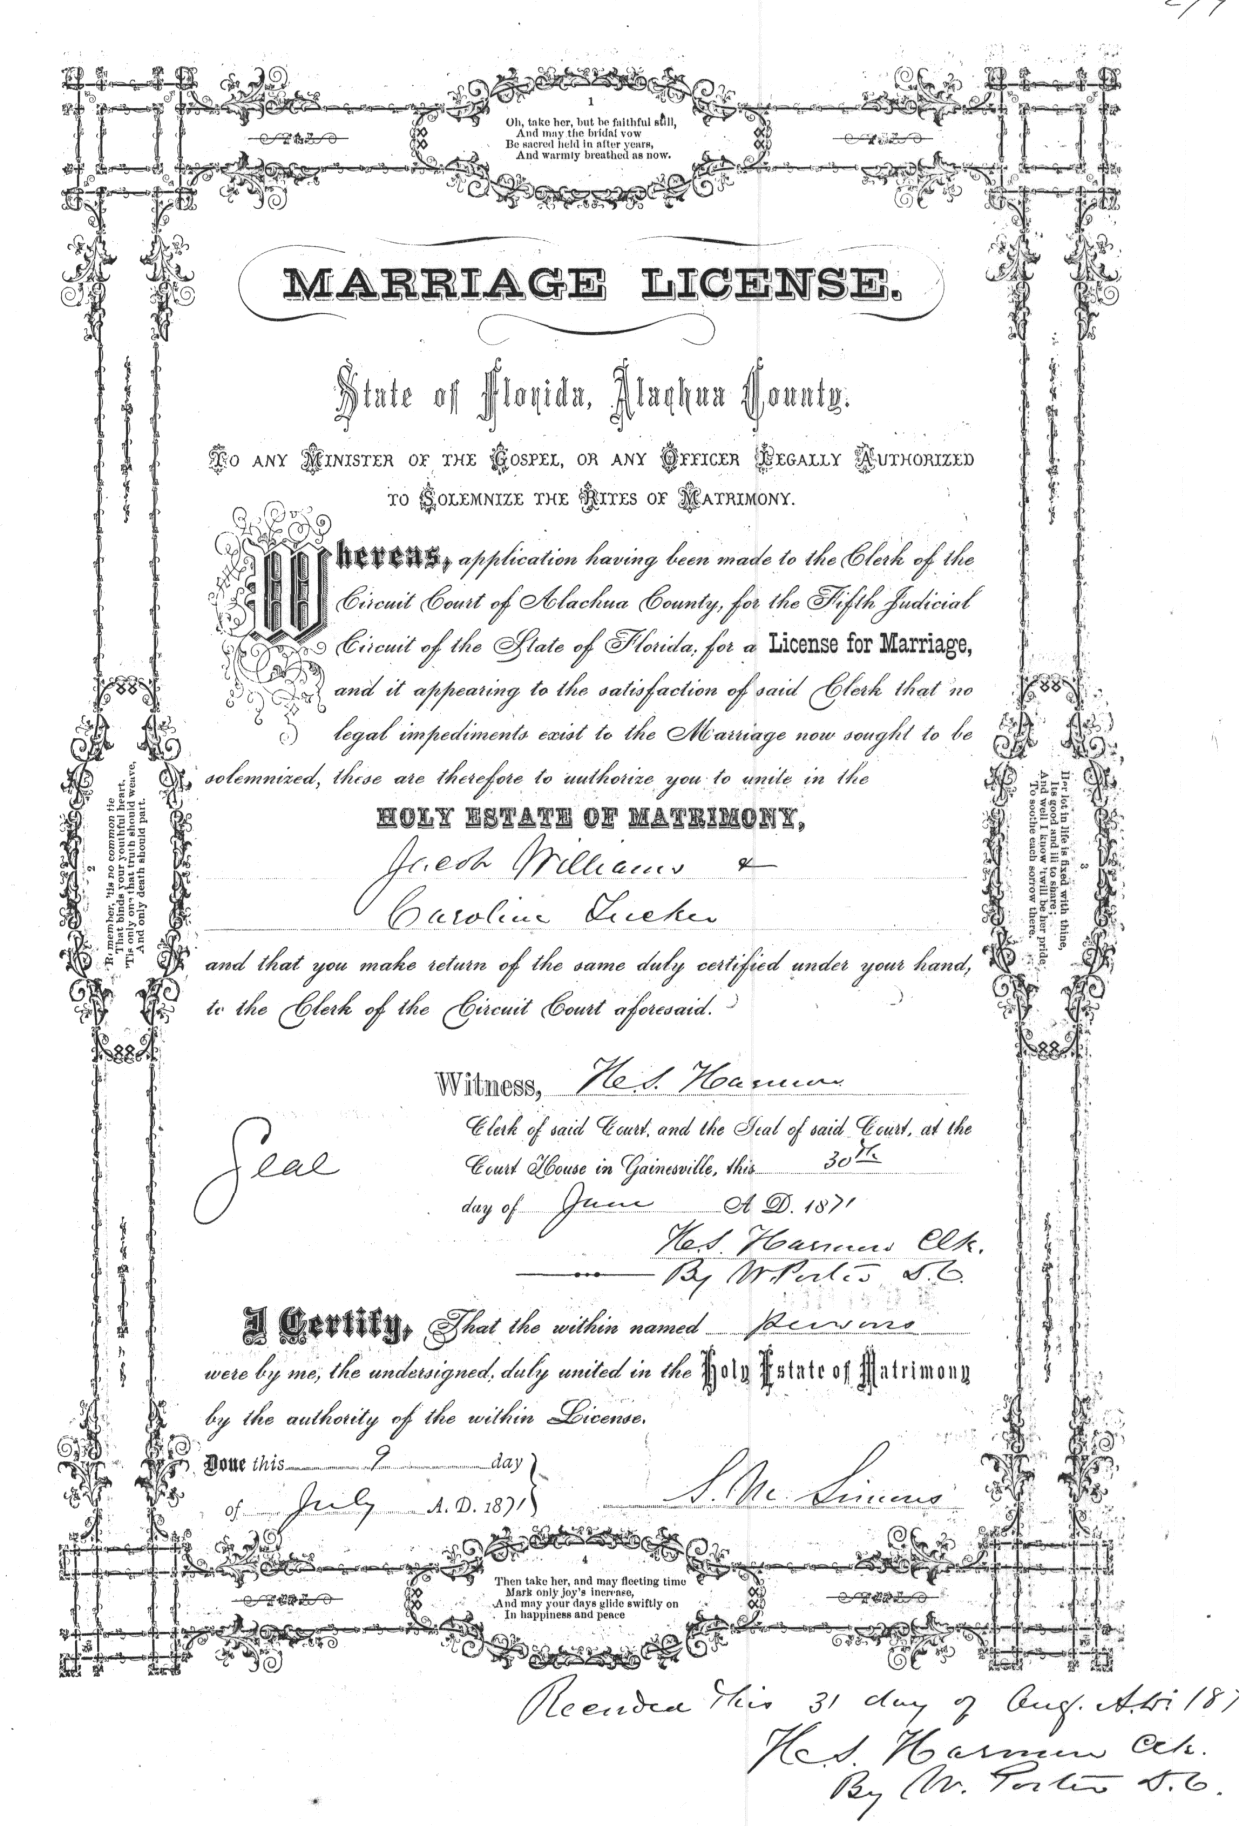 1
Oh, take her, but be faithful still,
And may the bridal vow
Be sacred held in after years,
And warmly breathed as now.
MARRIAGE LICENSE.
State of Florida, Alachua County.
TO ANY MINISTER OF THE GOSPEL, OR ANY OFFICER LEGALLY AUTHORIZED
TO SOLEMNIZE THE RITES OF MATRIMONY.
Whereas, application having been made to the Clerk of the
Circuit Court of Alachua County, for the Fifth Judicial
Circuit of the State of Florida, for a License for Marriage,
and it appearing to the satisfaction of said Clerk that no
legal impediments exist to the Marriage now sought to be
solemnized, these are therefore to authorize you to unite in the
HOLY ESTATE OF MATRIMONY,
Jacob Williams &
Caroline Tucker
and that you make return of the same duly certified under your hand,
to the Clerk of the Circuit Court aforesaid.
2
Remember, 'tis no common tie
That binds your youthful heart,
'Tis only one that truth should weave,
And only death should part.
3
Her lot in life is fixed with thine,
Its good and ill to share;
And well I know 'twill be her pride,
To soothe each sorrow there.
Witness, H.S. Harmon
Clerk of said Court, and the Seal of said Court, at the
Seal
Court House in Gainesville, this 30th
day of June A D. 1871
H.S. Harmon Clk.
By W. Porter D.C.
I Certify, That the within named persons
were by me, the undersigned, duly united in the Holy Estate of Matrimony
by the authority of the within License.
Done this 9 day
of July A.D. 1871
S. M. Simons
4
Then take her, and may fleeting time
Mark only joy's increase,
And may your days glide swiftly on
In happiness and peace
Recorded this 31 day of Aug. A.D. 187
H.S. Harmon Clk.
By W. Porter D.C.